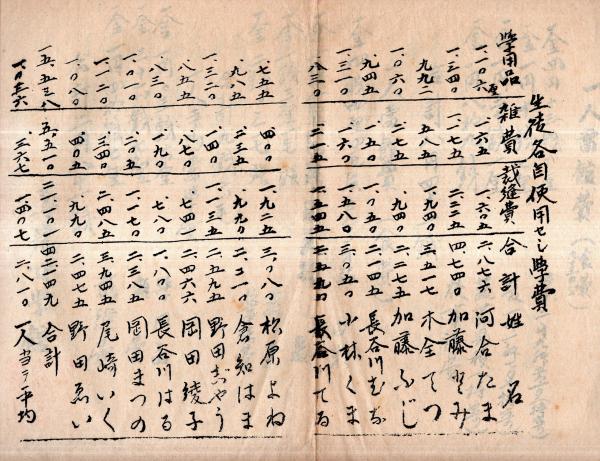 生徒各自使用セシ學費
學用品 雑費 裁縫費 合計 姓名
一、一〇六 、一六五 一、六〇五 二、八七六 河合たま
一、三四〇 一、一七五 二、二二五 四、七四〇 加藤とみ
、九九二 、五八五 一、九四〇 三、五一七 木全てつ
一、〇六〇 、二七五 、九四〇 二、二七五 加藤ふじ
、九四五 、一五〇 一、〇五〇 二、一四五 長谷川
一、三一〇 、一六〇 一、五八〇 三、〇五〇 小林くま
、八三〇 、二一五 一、五四五 二、五九〇 長谷川てる
、七五五 、四〇〇 一、九二五 三、〇八〇 松原よね
、九八五 、二三五 、九九〇 二、二一〇 倉知はま
一、三二〇 、一四〇 一、一三五 二、五九五 野田ぎやう
、八五五 、八七〇 、七四一 二、四六六 岡田綾子
、八三〇 、一九〇 、七八〇 一、八〇〇 長谷川はる
一、〇一〇 、二〇五 一、一七〇 二、三八五 岡田まつの
一、一二〇 、三四〇 二、四八五 三、九四五 尾崎いく
一、〇八〇 、四〇五 、九九〇 二、四七五 野田ゑい
一五、五三八 五、五一〇 二一、一〇一 四二、一四九 合計
一、〇三六 、三六七 一、四〇七 二、八一〇 一人当テ平均